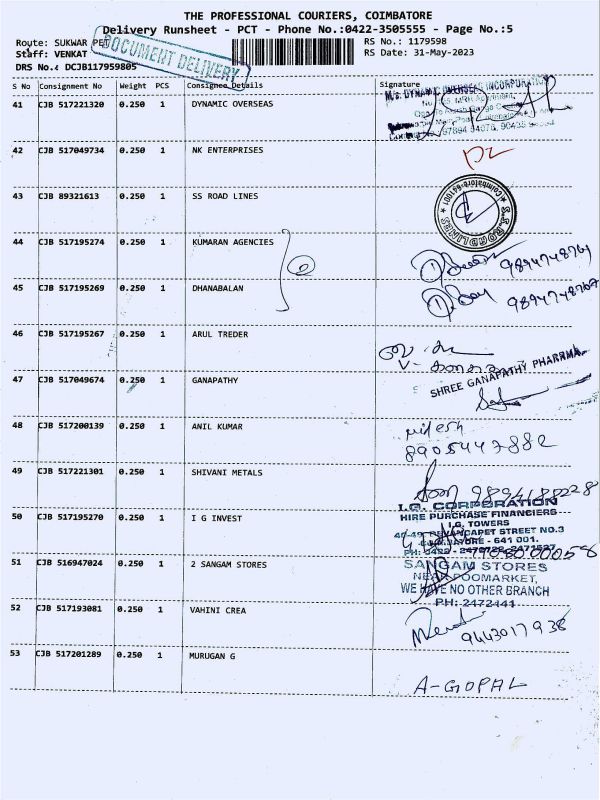 THE PROFESSIONAL COURIERS, COIMBATORE
Delivery Runsheet - PCT - Phone No.:0422-3505555 - Page No.:5
Route: SUKWAR PET
RS No.: 1179598
Staff: VENKAT
RS Date: 31-May-2023
DRS No.: DCJB117959805
DOCUMENT DELIVERY
S No Consignment No Weight PCS Consignee Details Signature
41 CJB 517221320 0.250 1 DYNAMIC OVERSEAS
M/s. DYNAMIC OVERSEAS INCORPORATION
42 CJB 517049734 0.250 1 NK ENTERPRISES
43 CJB 89321613 0.250 1 SS ROAD LINES
S.S. ROADLINES
Coimbatore-641001
44 CJB 517195274 0.250 1 KUMARAN AGENCIES
2
9894748769
45 CJB 517195269 0.250 1 DHANABALAN
9894748769
46 CJB 517195267 0.250 1 ARUL TREDER
47 CJB 517049674 0.250 1 GANAPATHY
SHREE GANAPATHY PHARRMA.
48 CJB 517200139 0.250 1 ANIL KUMAR
nilesh
8905447882
49 CJB 517221301 0.250 1 SHIVANI METALS
9894188228
50 CJB 517195270 0.250 1 I G INVEST
I.G. CORPORATION
HIRE PURCHASE FINANCIERS
I.G. TOWERS
STREET NO.3
COIMBATORE - 641 001.
51 CJB 516947024 0.250 1 2 SANGAM STORES
SANGAM STORES
NEAR POOMARKET,
WE HAVE NO OTHER BRANCH
PH: 2472441
52 CJB 517193081 0.250 1 VAHINI CREA
9443017938
53 CJB 517201289 0.250 1 MURUGAN G
A-GOPAL